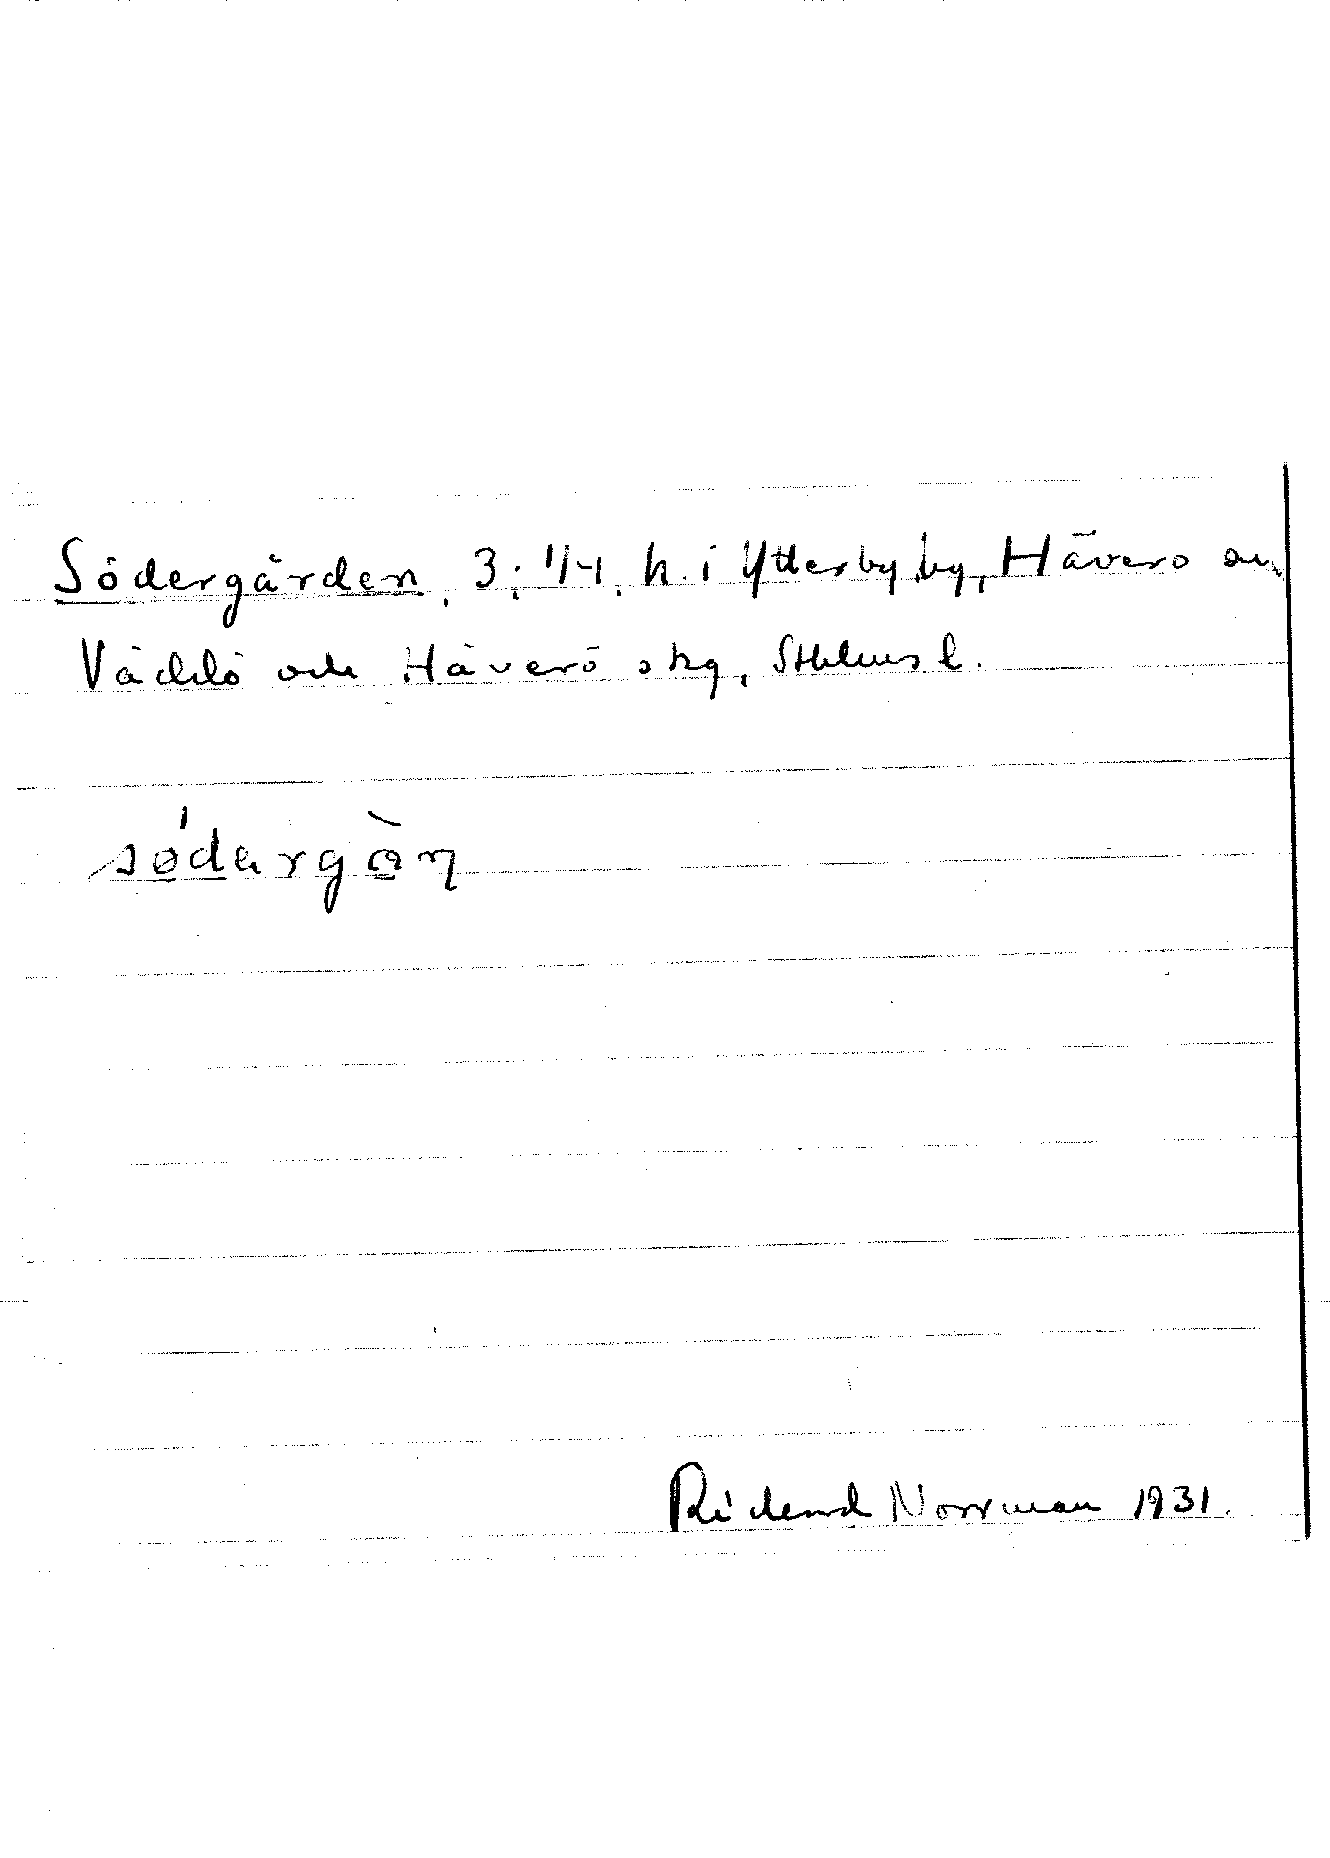 Södergården, 3:1/4, h. i Ytterby by, Häverö sn,
Väddö och Häverö skg, Sthlms l.
södargån
Ridend Norrman 1931.